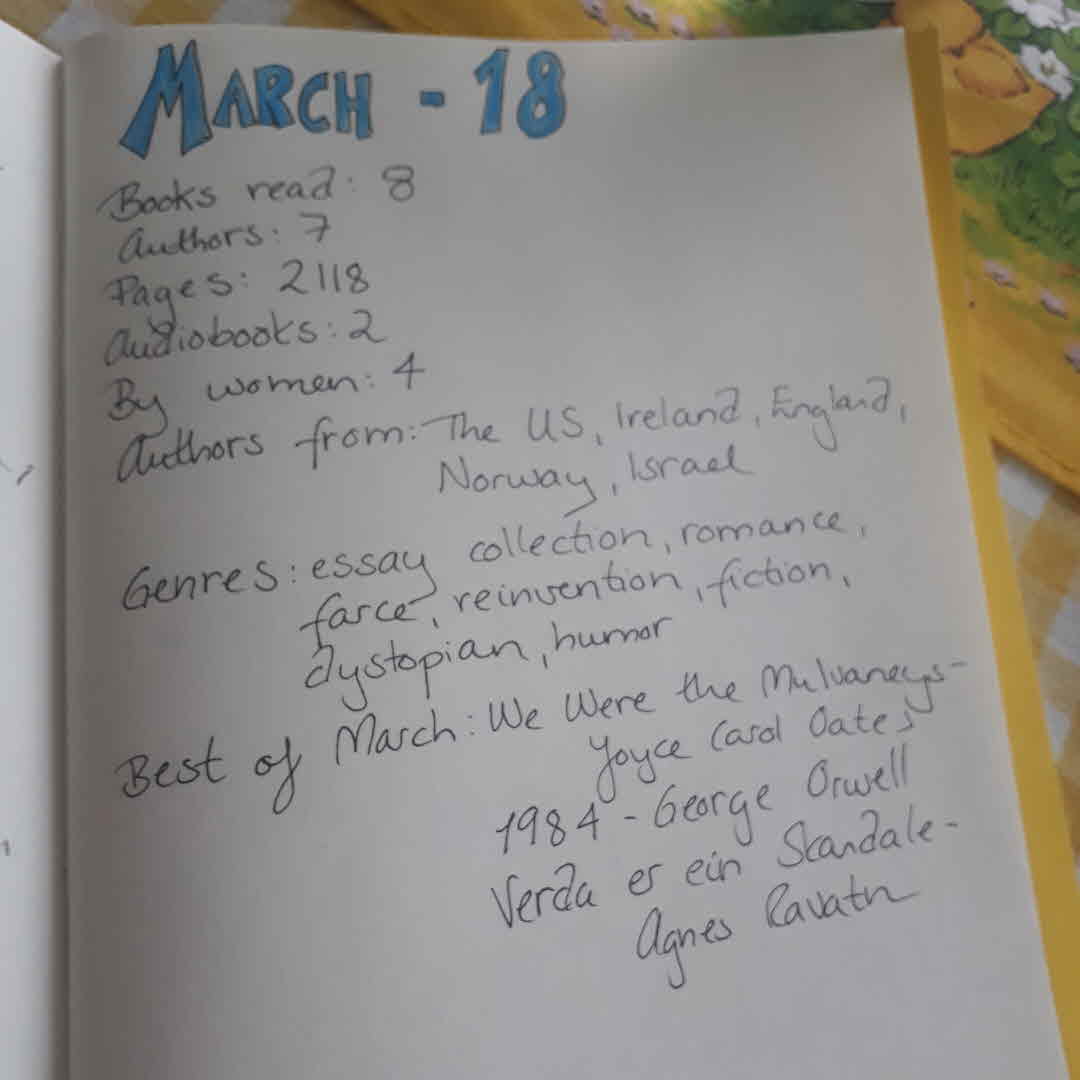 MARCH - 18
Books read: 8
Authors: 7
Pages: 2118
Audiobooks: 2
By women: 4
Authors from: The US, Ireland, England,
Norway, Israel
Genres: essay collection, romance,
farce, reinvention, fiction,
dystopian, humor
Best of March: We Were the Mulvaneys -
Joyce Carol Oates
1984 - George Orwell
Verda er ein Skandale -
Agnes Ravatn